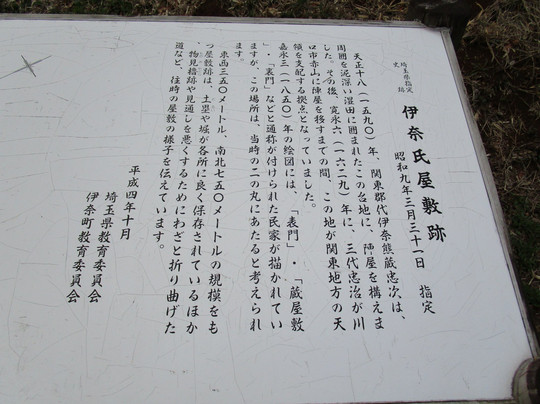 埼玉県指定
史跡
伊奈氏屋敷跡
昭和九年三月三十一日　指定
天正十八（一五九〇）年、関東郡代伊奈熊蔵忠次は、
周囲を泥深い湿田に囲まれたこの台地に、陣屋を構えま
した。その後、寛永六（一六二九）年に、三代忠治が川
口市赤山に陣屋を移すまでの間、この地が関東地方の天
領を支配する拠点となっていました。
嘉永三（一八五〇）年の絵図には、「表門」・「蔵屋敷
」・「裏門」などと通称が付けられた民家が描かれてい
ますが、この場所は、当時の二の丸にあたると考えられ
ます。
東西三五〇メートル、南北七五〇メートルの規模をも
つ屋敷跡は、土塁や堀が各所に良く保存されているほか
、物見櫓跡や見通しを悪くするためにわざと折り曲げた
道など、往時の屋敷の様子を伝えています。
平成四年十月
埼玉県教育委員会
伊奈町教育委員会